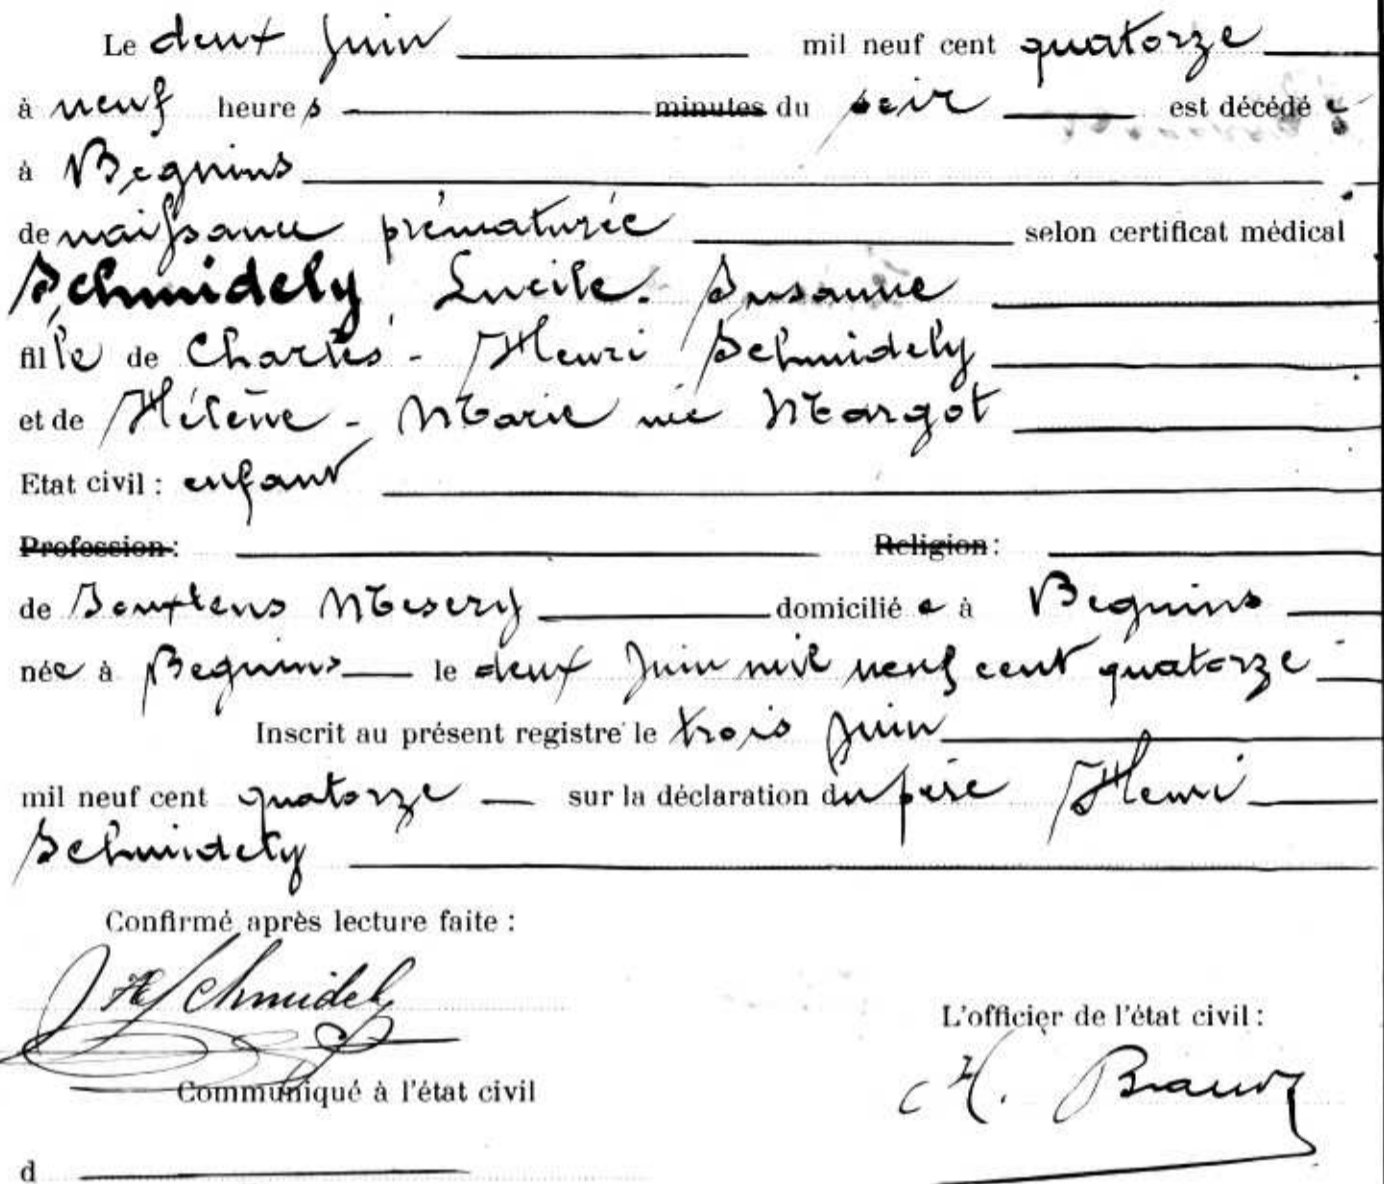 Le deux juin mil neuf cent quatorze
à neuf heures minutes du soir est décédée
à Begnins
de naissance prématurée selon certificat médical
Schmidely, Lucile-Susanne
fille de Charles-Henri Schmidely
et de Hélène-Marie née Margot
Etat civil : enfant
Profession : Religion :
de Jouxtens Mesery domiciliée à Begnins
née à Begnins le deux juin mil neuf cent quatorze
Inscrit au présent registre le trois juin
mil neuf cent quatorze sur la déclaration du père Henri
Schmidely
Confirmé après lecture faite :
H Schmidely
L'officier de l'état civil :
Communiqué à l'état civil
d